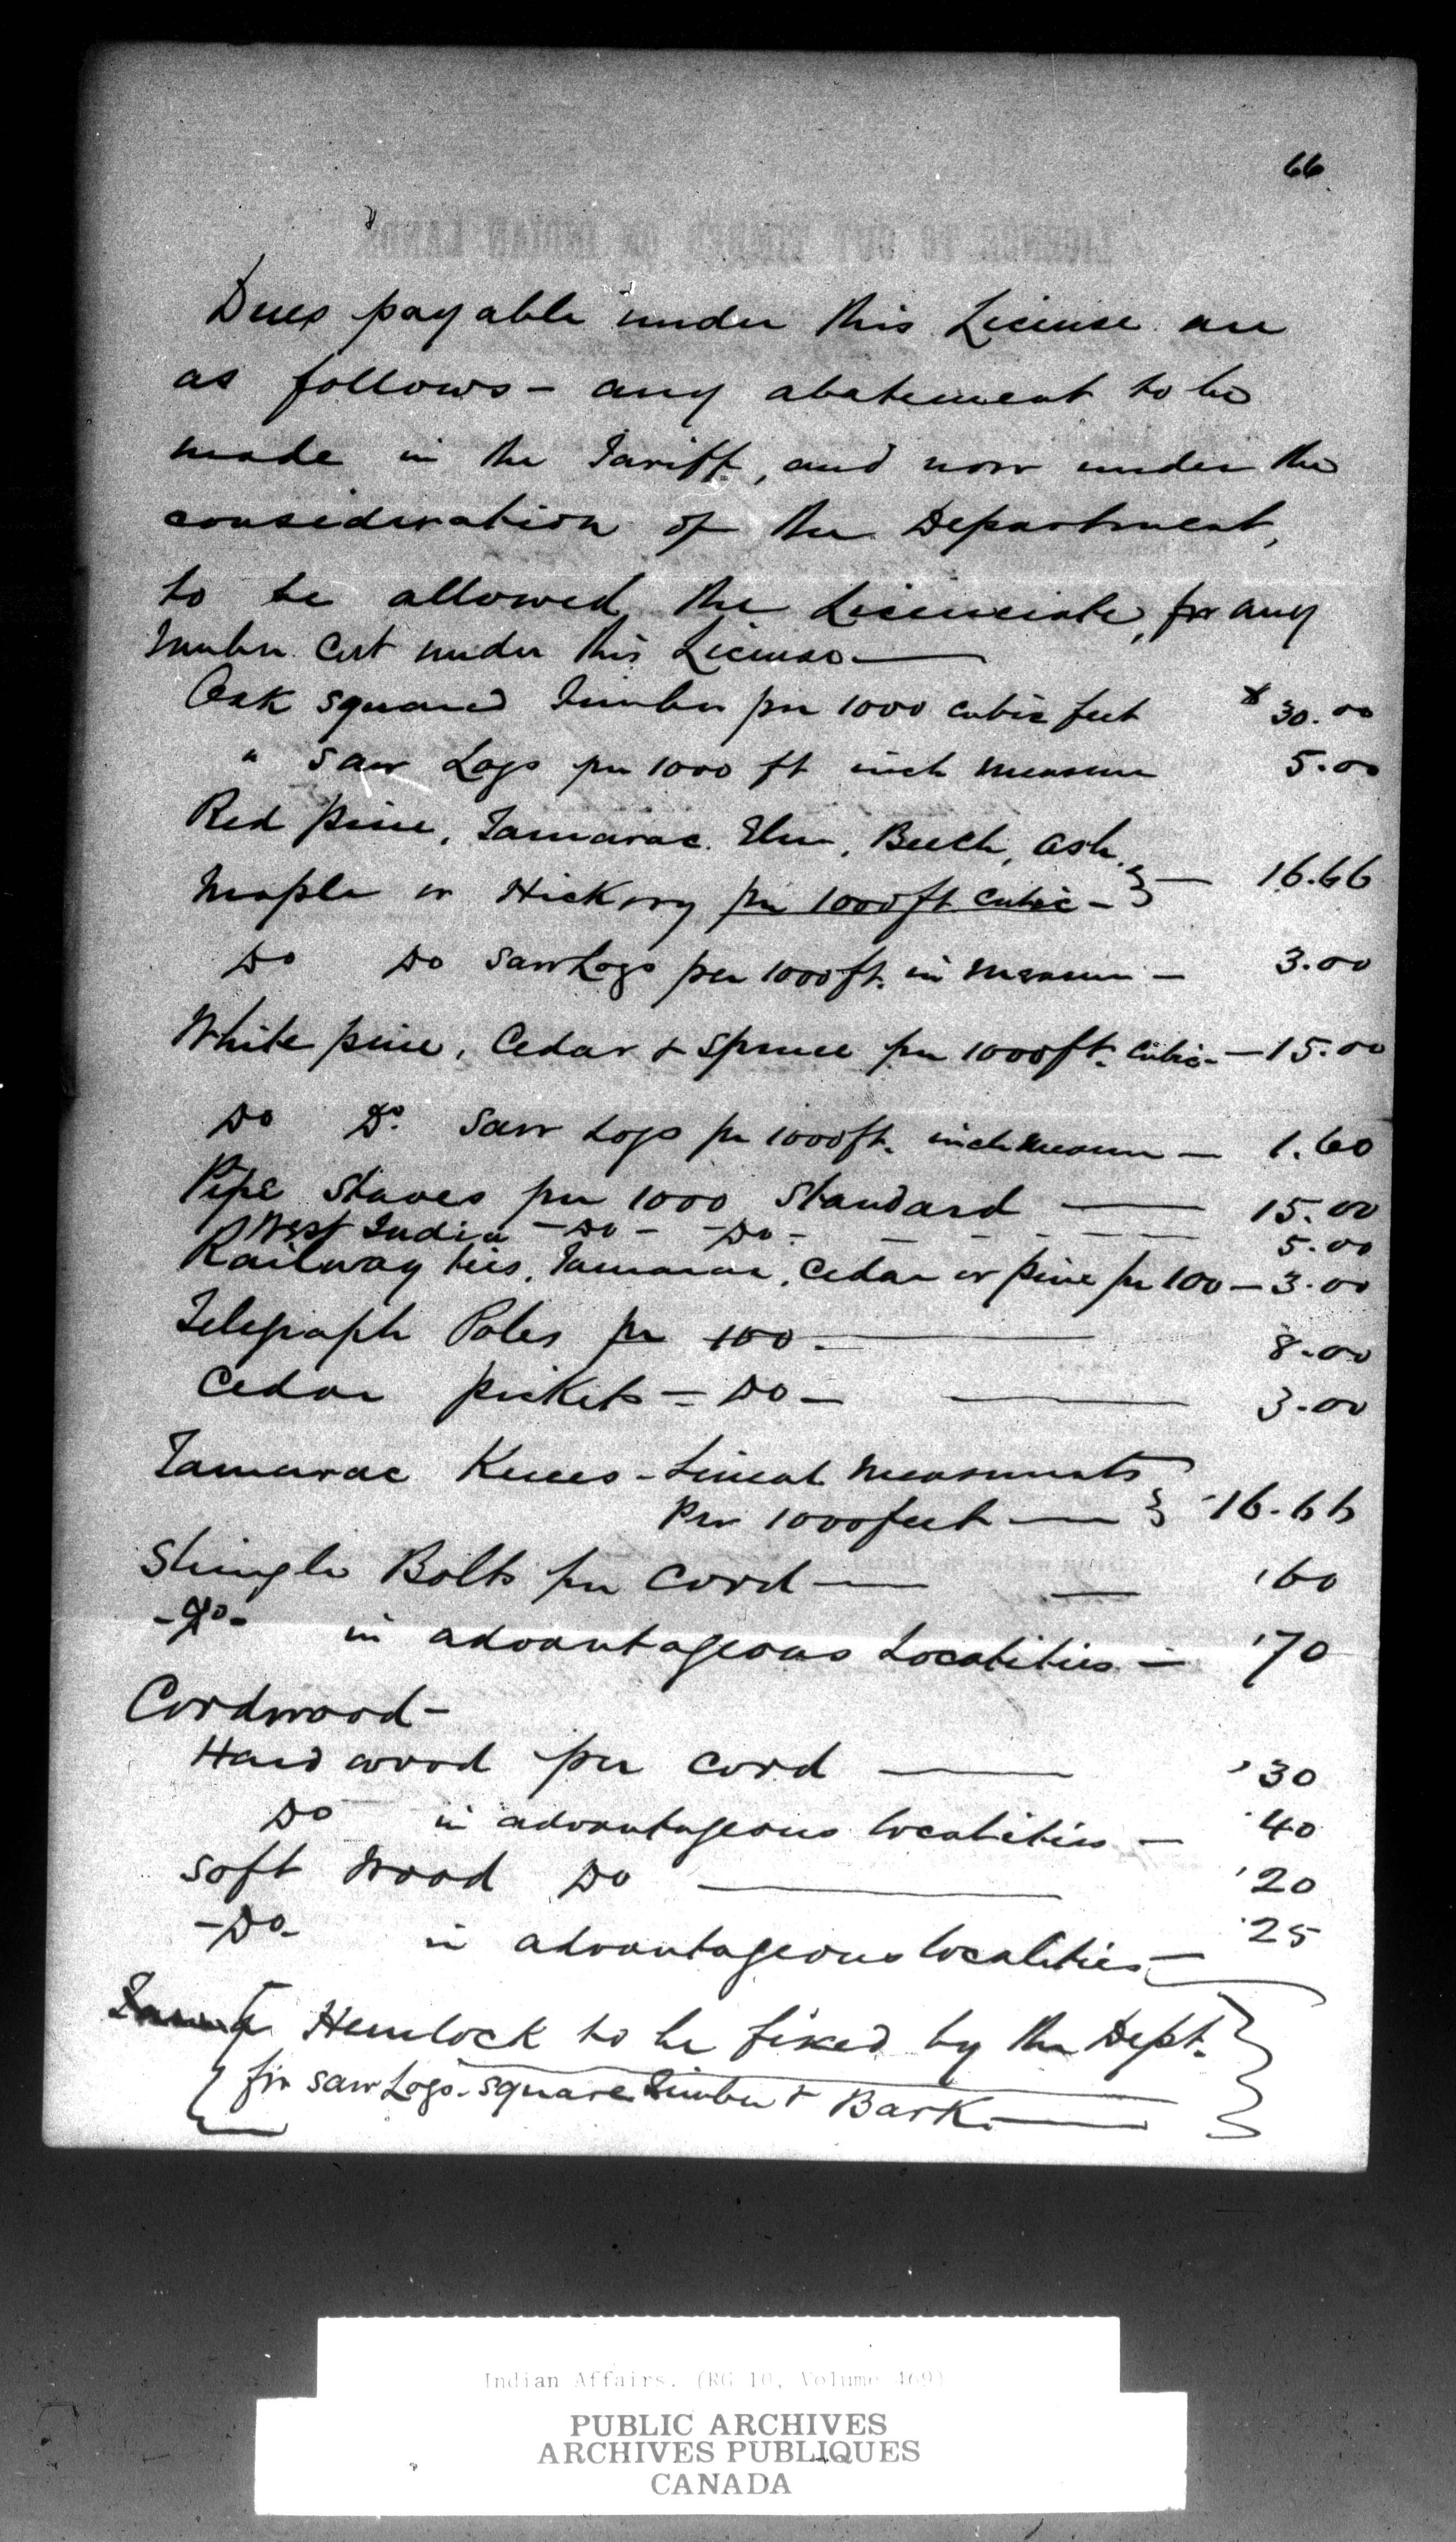 66
LICENSE TO CUT TIMBER ON INDIAN LANDS
Dues payable under this License are
as follows - any abatement to be
made in the Tariff, and now under the
consideration of the Department,
to be allowed the Licenciate, for any
timber cut under this License —
Oak squared Timber per 1000 cubic feet $30.00
" Saw Logs per 1000 ft inch measure 5.00
Red pine, Tamarac. Elm, Beech, Ash,
Maple or Hickory per 1000 ft cubic - } — 16.66
Do Do Saw Logs per 1000 ft. in measure — 3.00
White pine, Cedar & Spruce per 1000 ft. cubic - — 15.00
Do Do. Saw Logs pr 1000 ft. inch measure — 1.60
Pipe Staves per 1000 Standard — 15.00
West India - Do - - Do - - - - - - 5.00
Railway ties, Tamarac, Cedar or pine pr 100 — 3.00
Telegraph Poles pr 100 - — 8.00
Cedar pickets - Do - — 3.00
Tamarac Knees - Lineal measurements
Per 1000 feet — } 16.66
Shingle Bolts per Cord — — .60
- Do - in advantageous Localities — .70
Cordwood -
Hard wood per cord — .30
Do in advantageous localities — .40
Soft Wood Do — .20
- Do - in advantageous localities — .25
Hemlock to be fixed by the Dept.
for saw Logs - square Timber & Bark. —
Indian Affairs. (RG 10, Volume 469)
PUBLIC ARCHIVES
ARCHIVES PUBLIQUES
CANADA